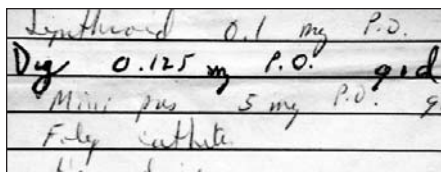 Synthroid 0.1 mg P.O.
Dig 0.125 mg P.O. qod
Mini pres 5 mg P.O. q
Foley cathete